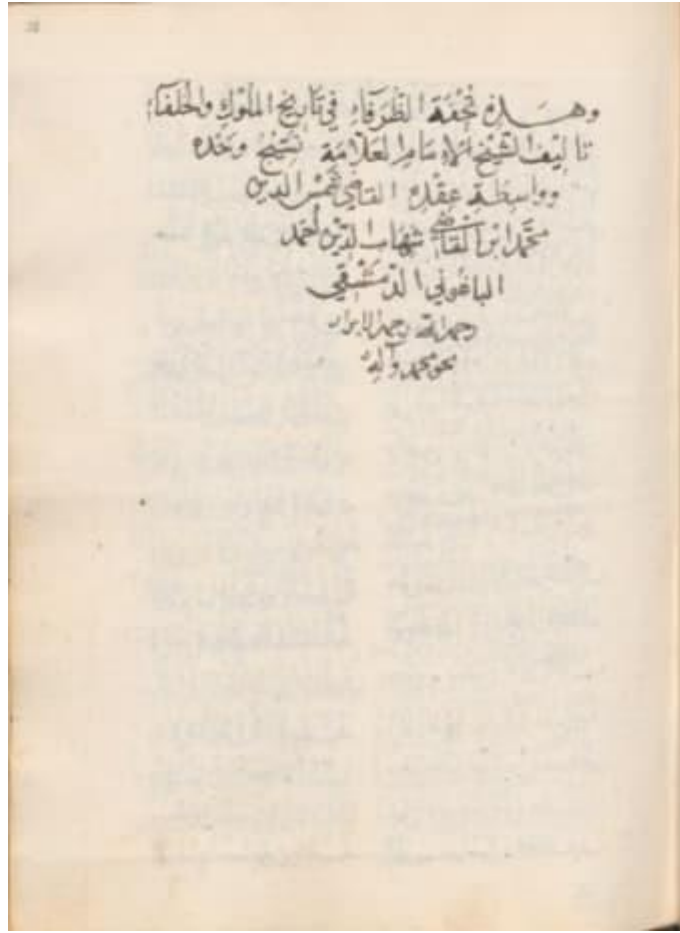 وهذه تُحْفَة الظُرَفَاءِ في تَاريخ الملُوكِ والخلفآء
تاليف الشَّيْخ الإمَام العَلّامَة نَسِيْج وَحْده
وواسِطَة عِقْدِه القاضي شَمْس الدين
محمَّد ابن القَاضي شِهَاب الدّين أحمَد
الباعُوني الدّمَشْقي
رحمه الله رحمة الابرار
بحق محمد وآله